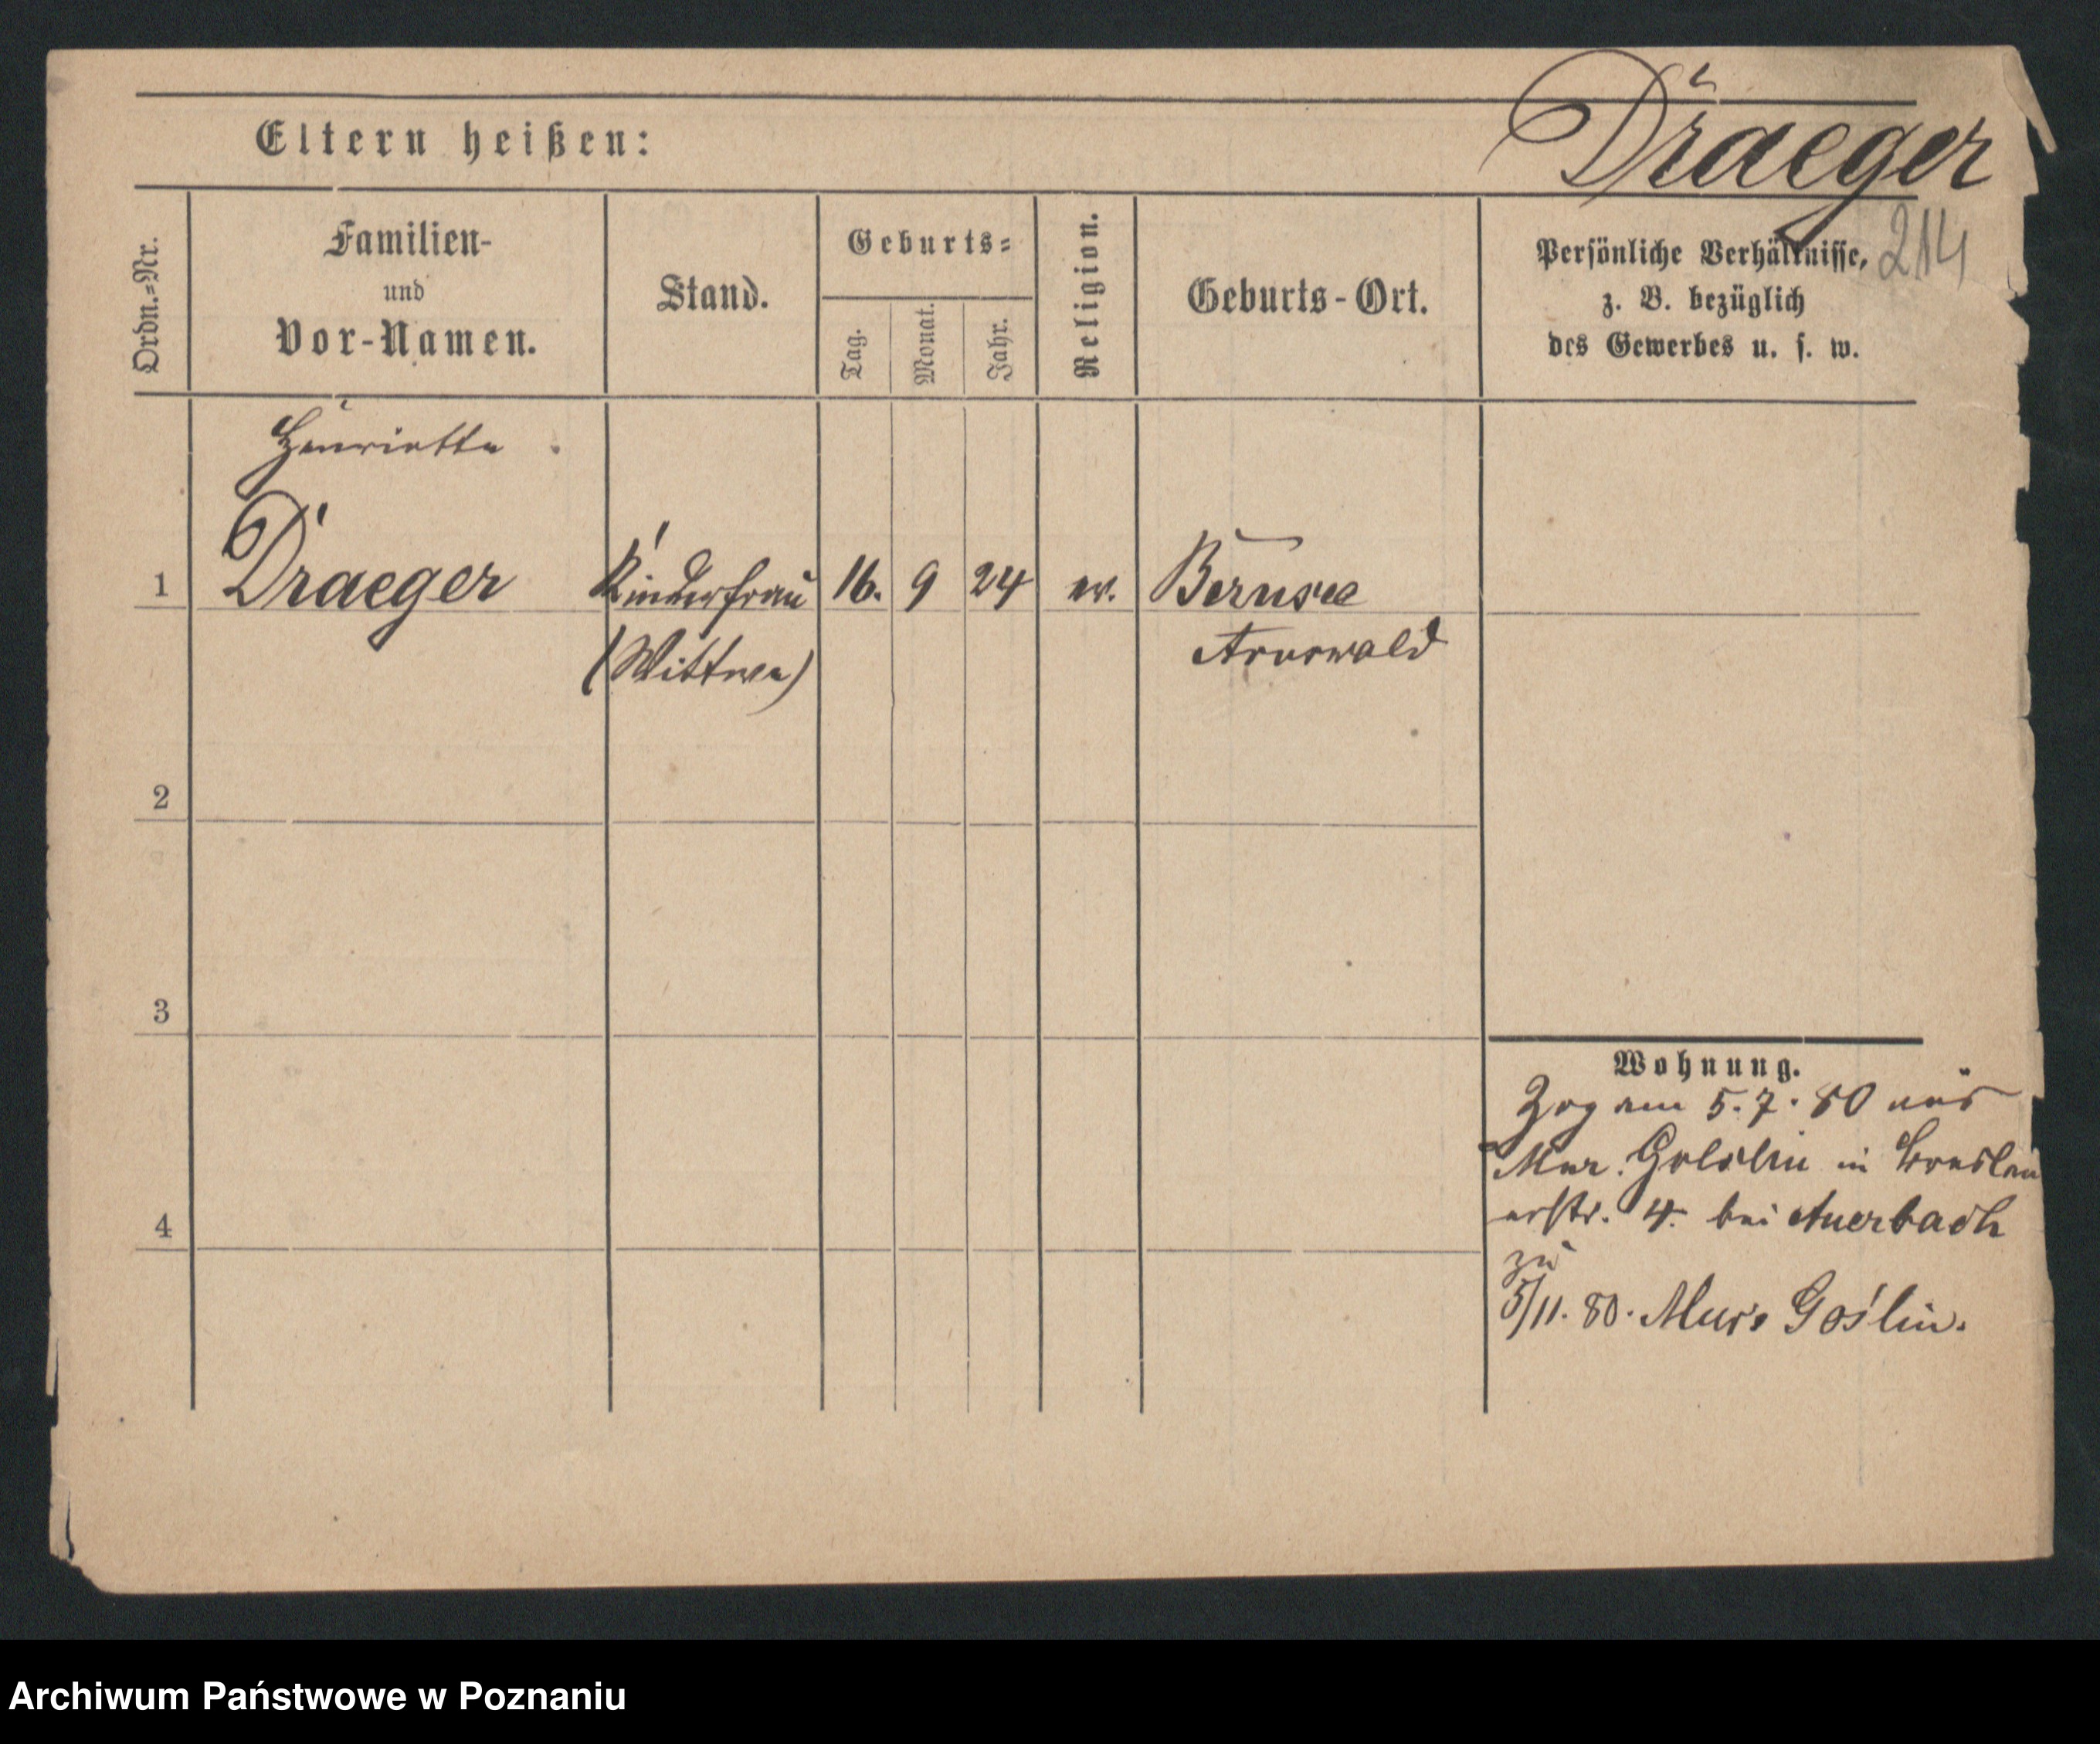 Draeger
Eltern heißen:
214
Ordn.=Nr.
Familien-
und
Vor-Namen.
Stand.
Geburts=
Tag.
Monat.
Jahr.
Religion.
Geburts-Ort.
Persönliche Verhältnisse,
z. B. bezüglich
des Gewerbes u. s. w.
Henriette
1 Draeger Kinderfrau 16. 9 24 ev. Bernsee
(Wittwe) Arnswald
2
3
Wohnung.
Zog am 5.7.80 aus
Mur. Goslin in Breslau
erstr. 4. bei Auerbach
zu
4
5/11. 80. Mur. Goślin.
Archiwum Państwowe w Poznaniu